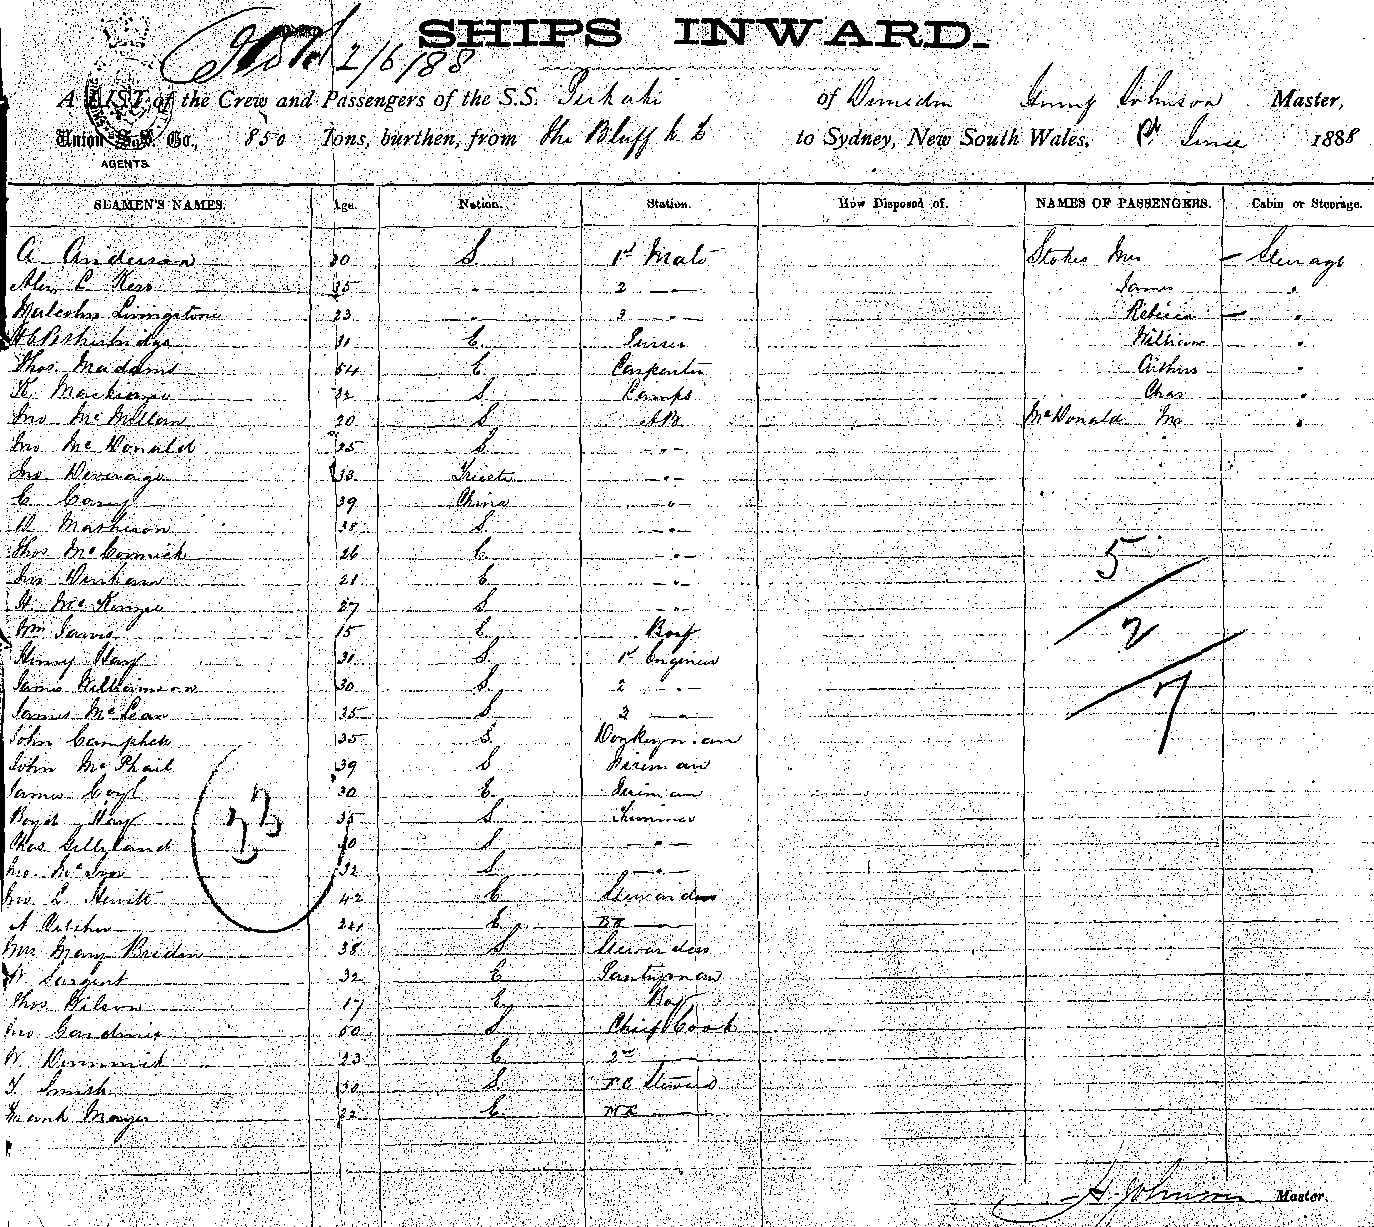 SHIPS INWARD.
2/6/88
A LIST of the Crew and Passengers of the S.S. of Henry Johnson Master,
Union S.S. Co., 850 Tons, burthen, from The Bluff to Sydney, New South Wales, 1888
AGENTS.
SEAMEN'S NAMES. Age. Nation. Station. How Disposed of. NAMES OF PASSENGERS. Cabin or Steerage.
A Anderson 30 S 1st Mate Stokes Mrs Steerage
Alex C Kerr " 2 — " James "
Malcolm Livingstone 23 " 3 — " Rebecca "
31 E Purser William "
Thos. Madams 54 E Carpenter Arthur "
K. Mackenzie 32 S Lamps Chas "
Jno McMillan 20 S AB McDonald "
Jno McDonald 25 — " —
Jno 33 Trieste — " —
C 39 China — " —
D. Mathieson 38 S — " —
Thos McCormick 26 E — " —
Jno Denham 21 E — " —
H. McKenzie 27 S — " —
Wm Jarvis 15 E Boy
Henry Hay 31 S 1st Engineer
James Williamson 30 S 2 — " —
James McLean 35 S 3 — "
John Campbell 35 S Donkeyman
John McPhail 39 S Fireman
James Coyl 30 E Fireman
Boyd Hay S Trimmer
Chas Gillyland S — " —
Jno 32 S — " —
Jno L Hewitt 42 E Steward
A E —
Mrs Mary Bridson 38 S Stewardess
W Sargent 32 E Pantryman
Thos. Wilson 17 E Boy
Jno Gardiner 50 S Chief Cook
W. Dimmick 23 E 2nd —
T Smith 30 S F.C. Steward
Frank Mayer 22 E —
5
2
7
33
H. Johnson Master.